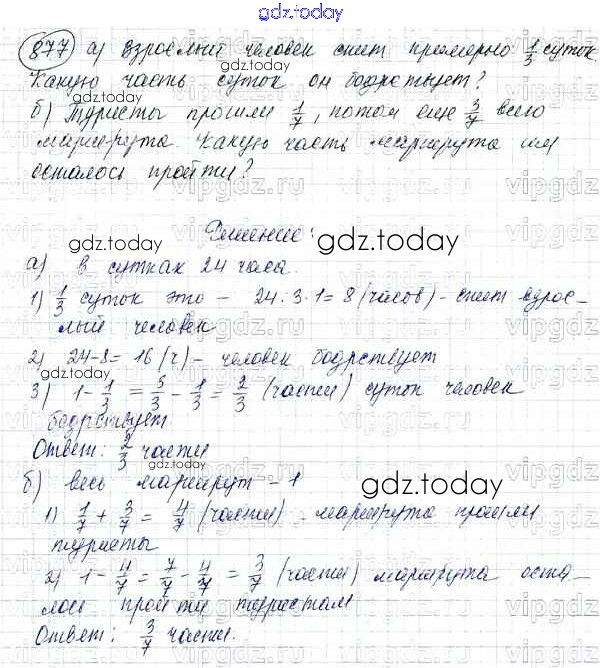 gdz.today
877 а) Взрослый человек спит примерно 1/3 суток.
Какую часть суток он бодрствует?
б) Туристы прошли 1/7, потом еще 3/7 всего
маршрута. Какую часть маршрута им
осталось пройти?
Решение:
gdz.today
а) в сутках 24 часа.
1) 1/3 суток это - 24 : 3 · 1 = 8 (часов) - спит взрос-
лый человек
2) 24-8 = 16 (ч) - человек бодрствует
gdz.today
3) 1 - 1/3 = 3/3 - 1/3 = 2/3 (части) суток человек
бодрствует.
Ответ: 2/3 части
gdz.today
б) весь маршрут - 1
gdz.today
1) 1/7 + 3/7 = 4/7 (части) - маршрута прошли
туристы
2) 1 - 4/7 = 7/7 - 4/7 = 3/7 (части) маршрута оста-
лось пройти туристам
Ответ: 3/7 части.
vipgdz.ru